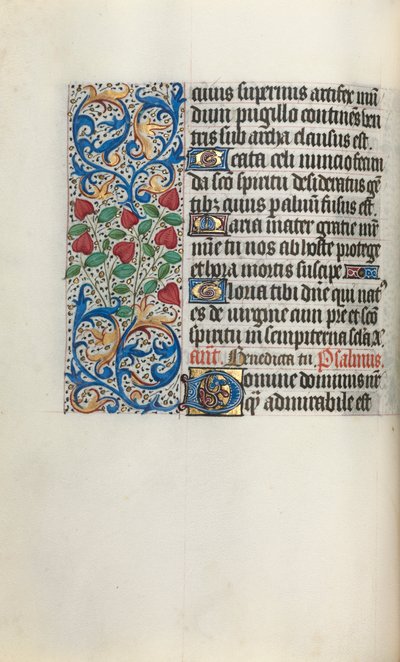 cuius supernus artifex mū
dum pugillo continēs ven
tris sub archa clausus est.
Beata celi nuncio fecun
da sc̄o spiritu desideratus gē
tibꝫ cuius paluū fusus est.
Maria mater gratie mr̄
mīe tu nos ab hoste protege
et hora mortis suscipe
Gloria tibi dn̄e qui nat9
es de uirgine cum pr̄e et sc̄o
spiritu in sempiterna secla. A.
ant. Benedicta tu Psalmus
Domine dominus nr̄
qȝ admirabile est